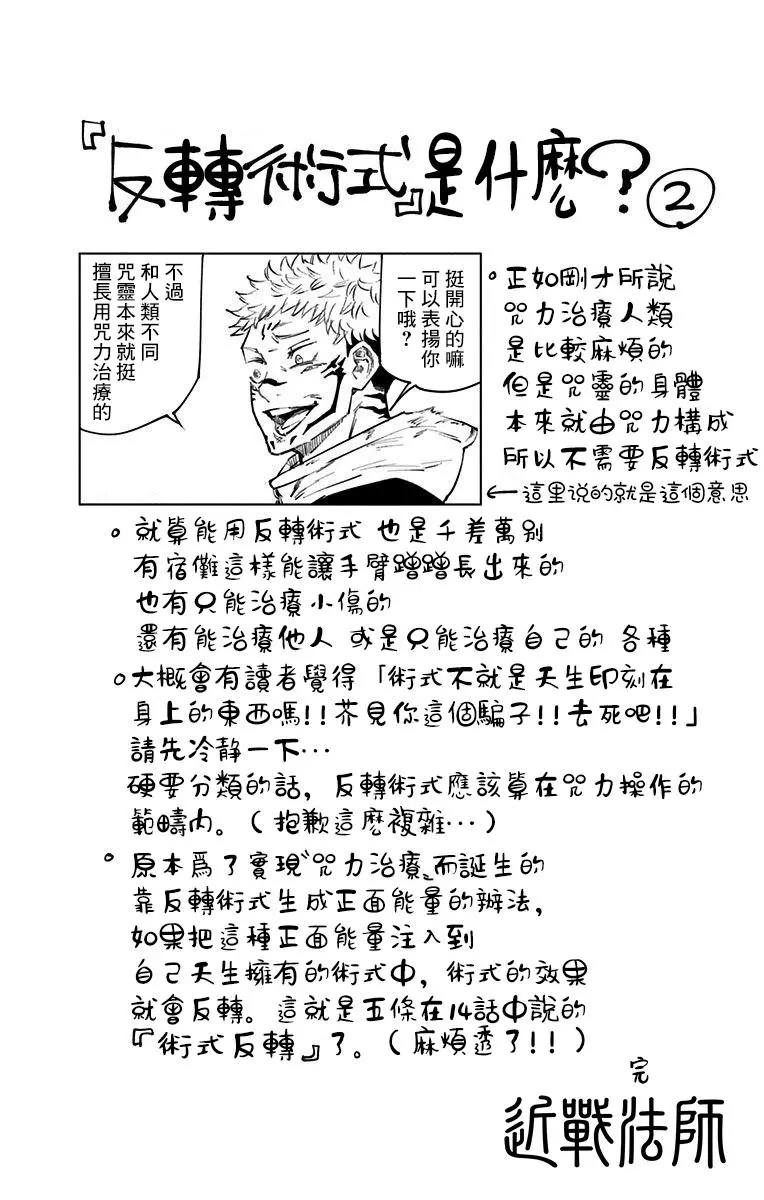 『反轉術式』是什麼？②
挺開心的嘛
可以表揚你
一下哦？
不過
和人類不同
咒靈本來就挺
擅長用咒力治療的
。正如剛才所說
咒力治療人類
是比較麻煩的
但是咒靈的身體
本來就由咒力構成
所以不需要反轉術式
←這里说的就是這個意思
。就算能用反轉術式 也是千差萬別
有宿儺這樣能讓手臂蹭蹭長出來的
也有只能治療小傷的
還有能治療他人 或是只能治療自己的 各種
。大概會有讀者覺得「術式不就是天生印刻在
身上的東西嗎!!芥見你這個騙子!!去死吧!!」
請先冷靜一下…
硬要分類的話，反轉術式應該算在咒力操作的
範疇内。(抱歉這麼複雜…)
。原本爲了實現〝咒力治療〟而誕生的
靠反轉術式生成正面能量的辦法，
如果把這種正面能量注入到
自己天生擁有的術式中，術式的效果
就會反轉。這就是五條在14話中說的
『術式反轉』了。(麻煩透了!!)
完
近戰法師